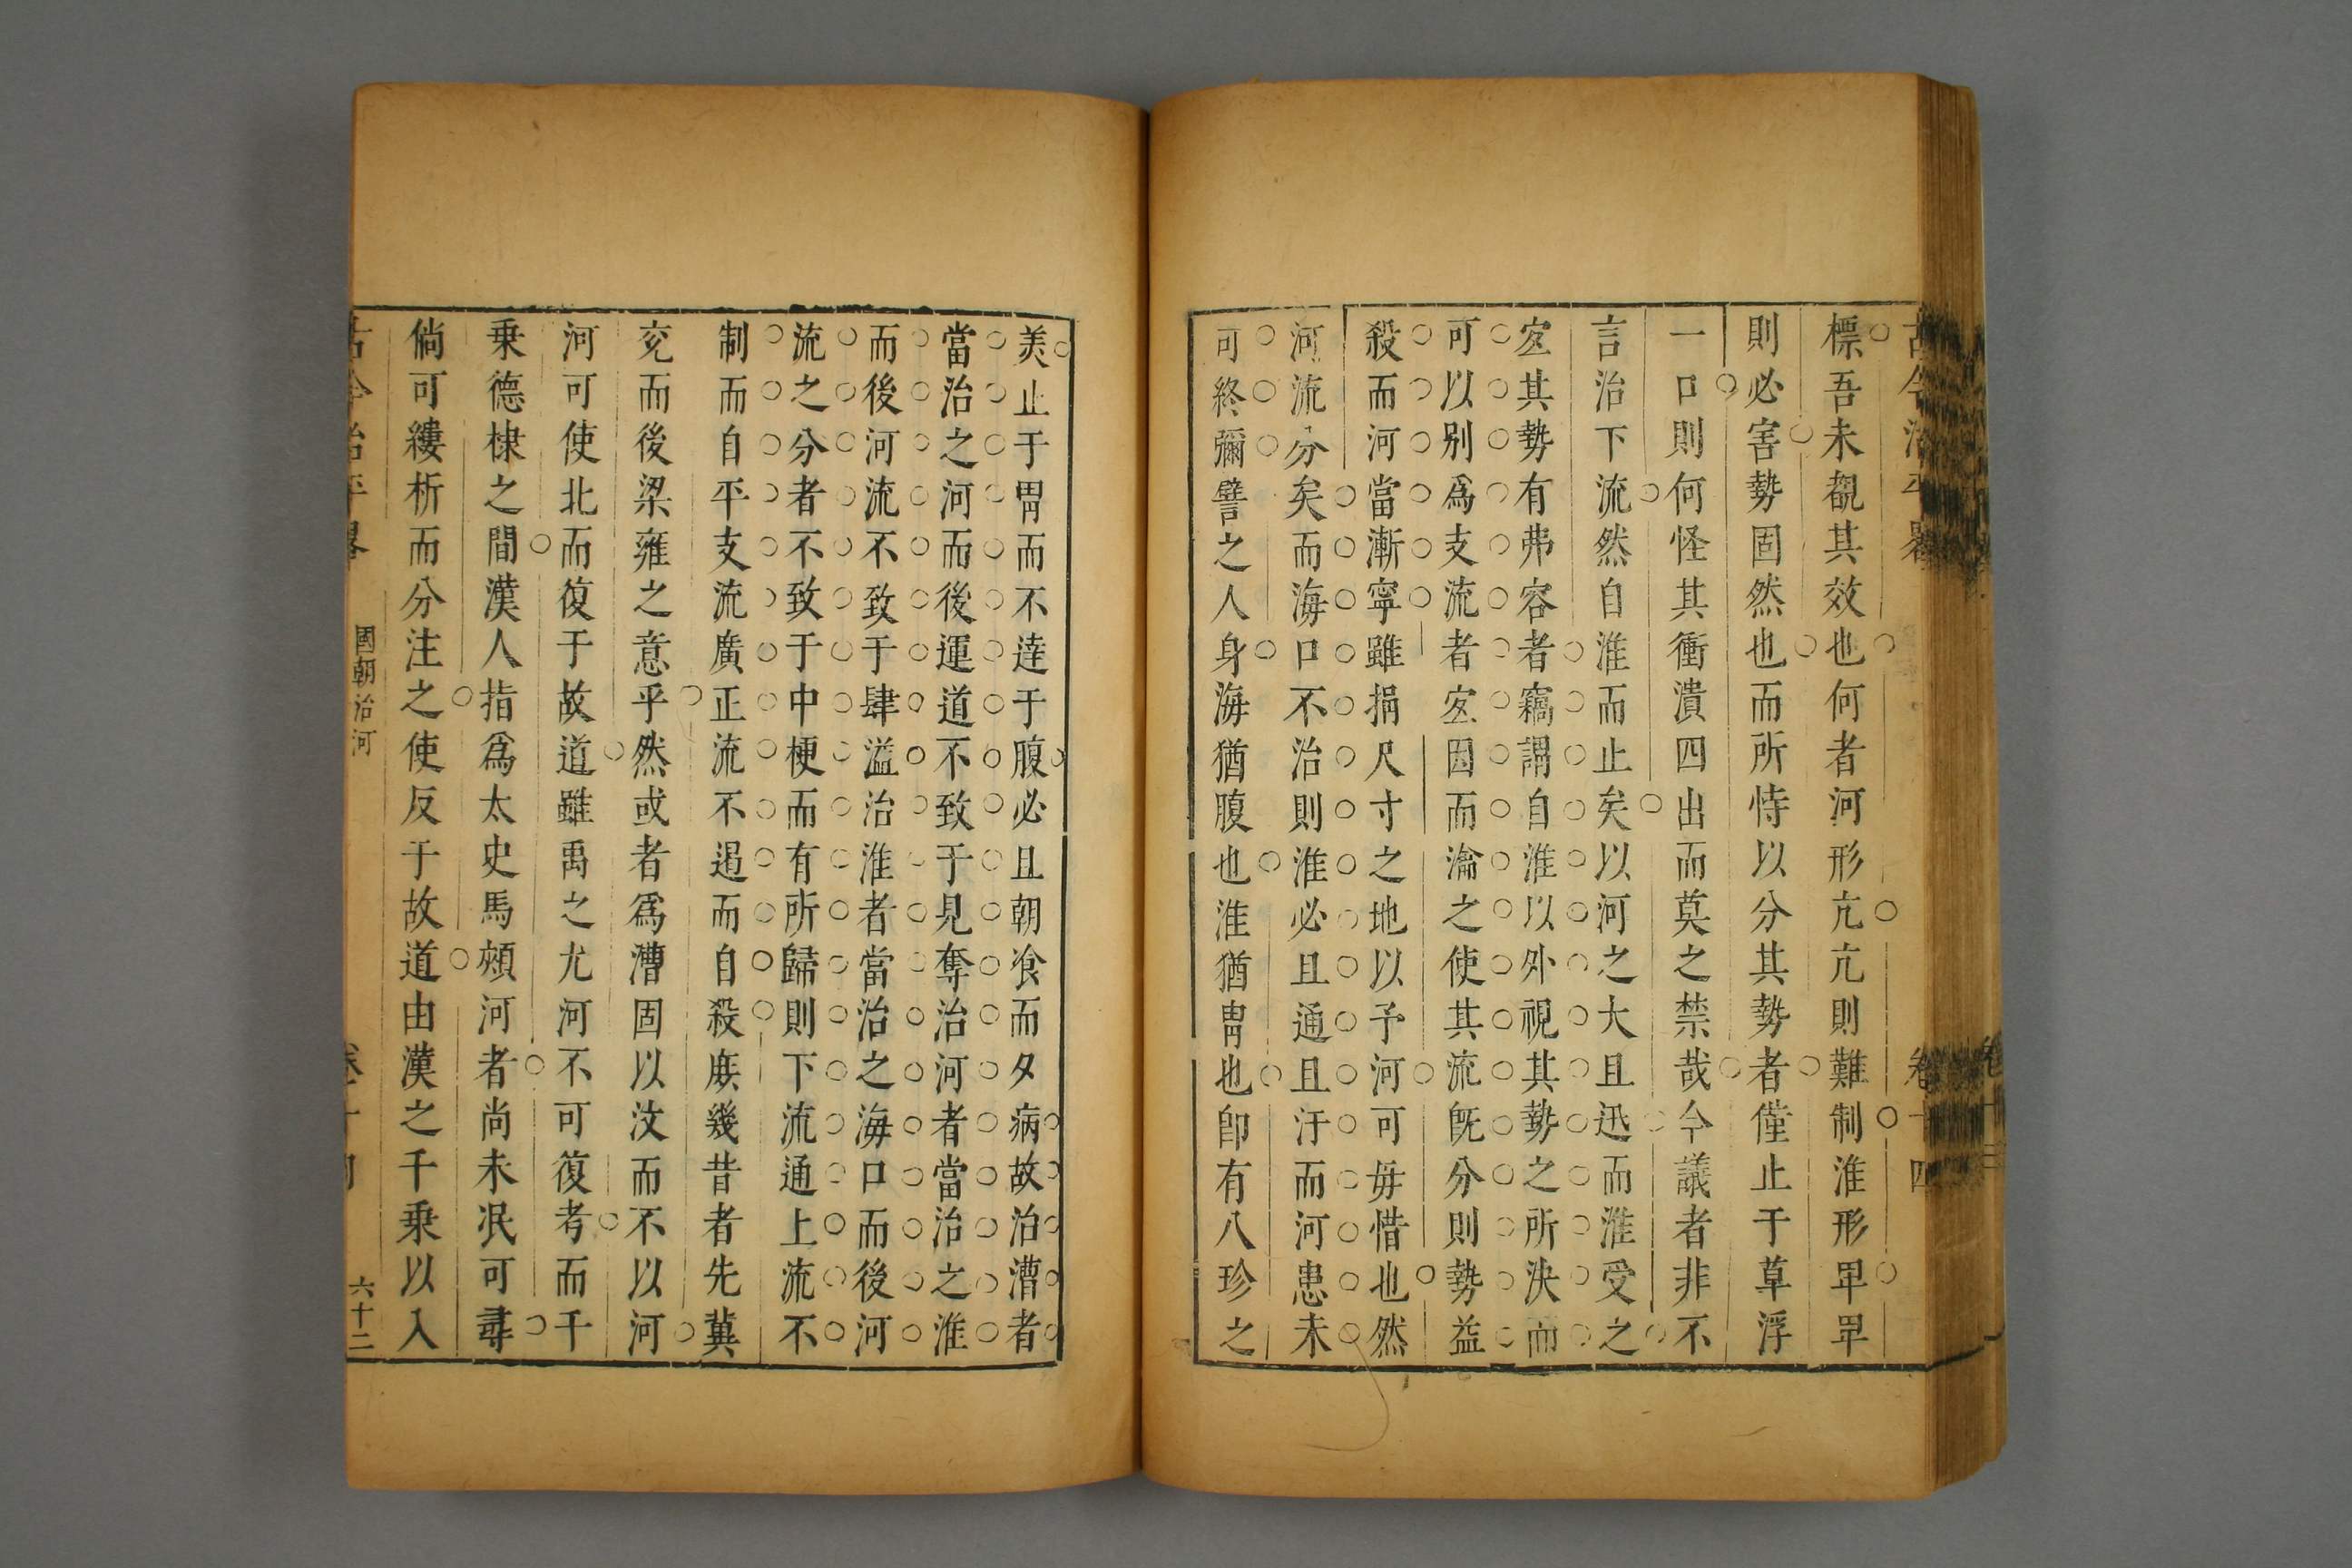 標吾未覩其效也何者河形亢亢則難制淮形甲甲
則必害勢固然也而所恃以分其勢者僅止于草浮
一口則何怪其衝潰四出而莫之禁哉今議者非不
言治下流然自淮而止矣以河之大且迅而淮受之
宐其勢有弗容者竊謂自淮以外視其勢之所決而
可以别爲支流者宐因而瀹之使其流旣分則勢益
殺而河當漸寧雖捐尺寸之地以予河可毋惜也然
河流分矣而海口不治則淮必且通且汙而河患未
可終彌譬之人身海猶腹也淮猶胃也卽有八珍之
美止于胃而不達于腹必且朝飡而夕病故治漕者
當治之河而後運道不致于見奪治河者當治之淮
而後河流不致于肆溢治淮者當治之海口而後河
流之分者不致于中梗而有所歸則下流通上流不
制而自平支流廣正流不遏而自殺庻幾昔者先冀
兖而後梁雍之意乎然或者爲漕固以汶而不以河
河可使北而復于故道雖禹之尤河不可復考而千
乗德棣之間漢人指爲太史馬頰河者尚未泯可尋
倘可縷析而分注之使反于故道由漢之千乗以入
國朝治河
六十二